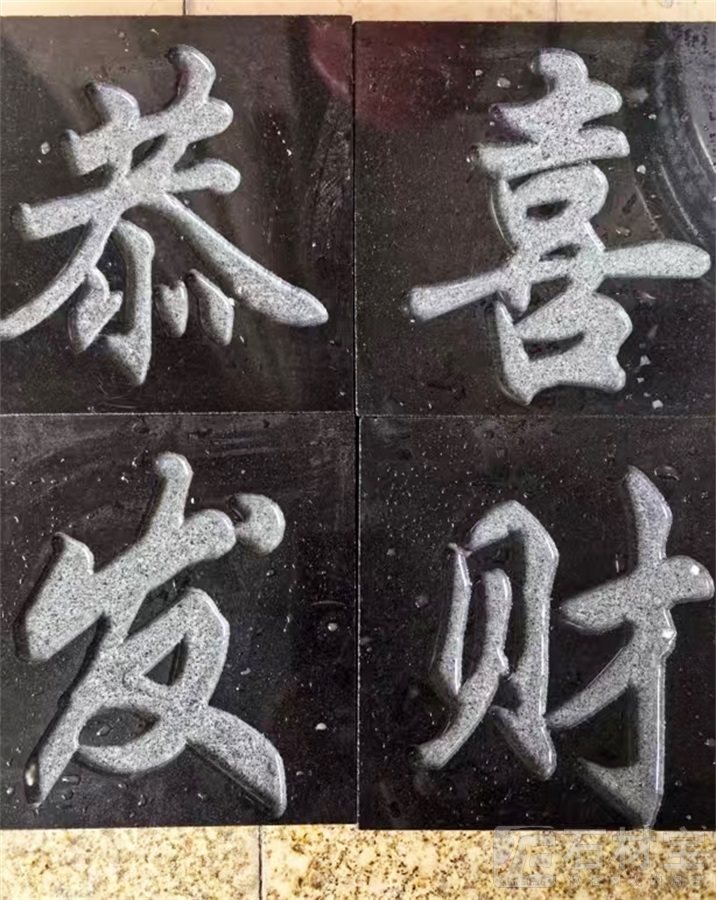 恭喜
发财
石材宝